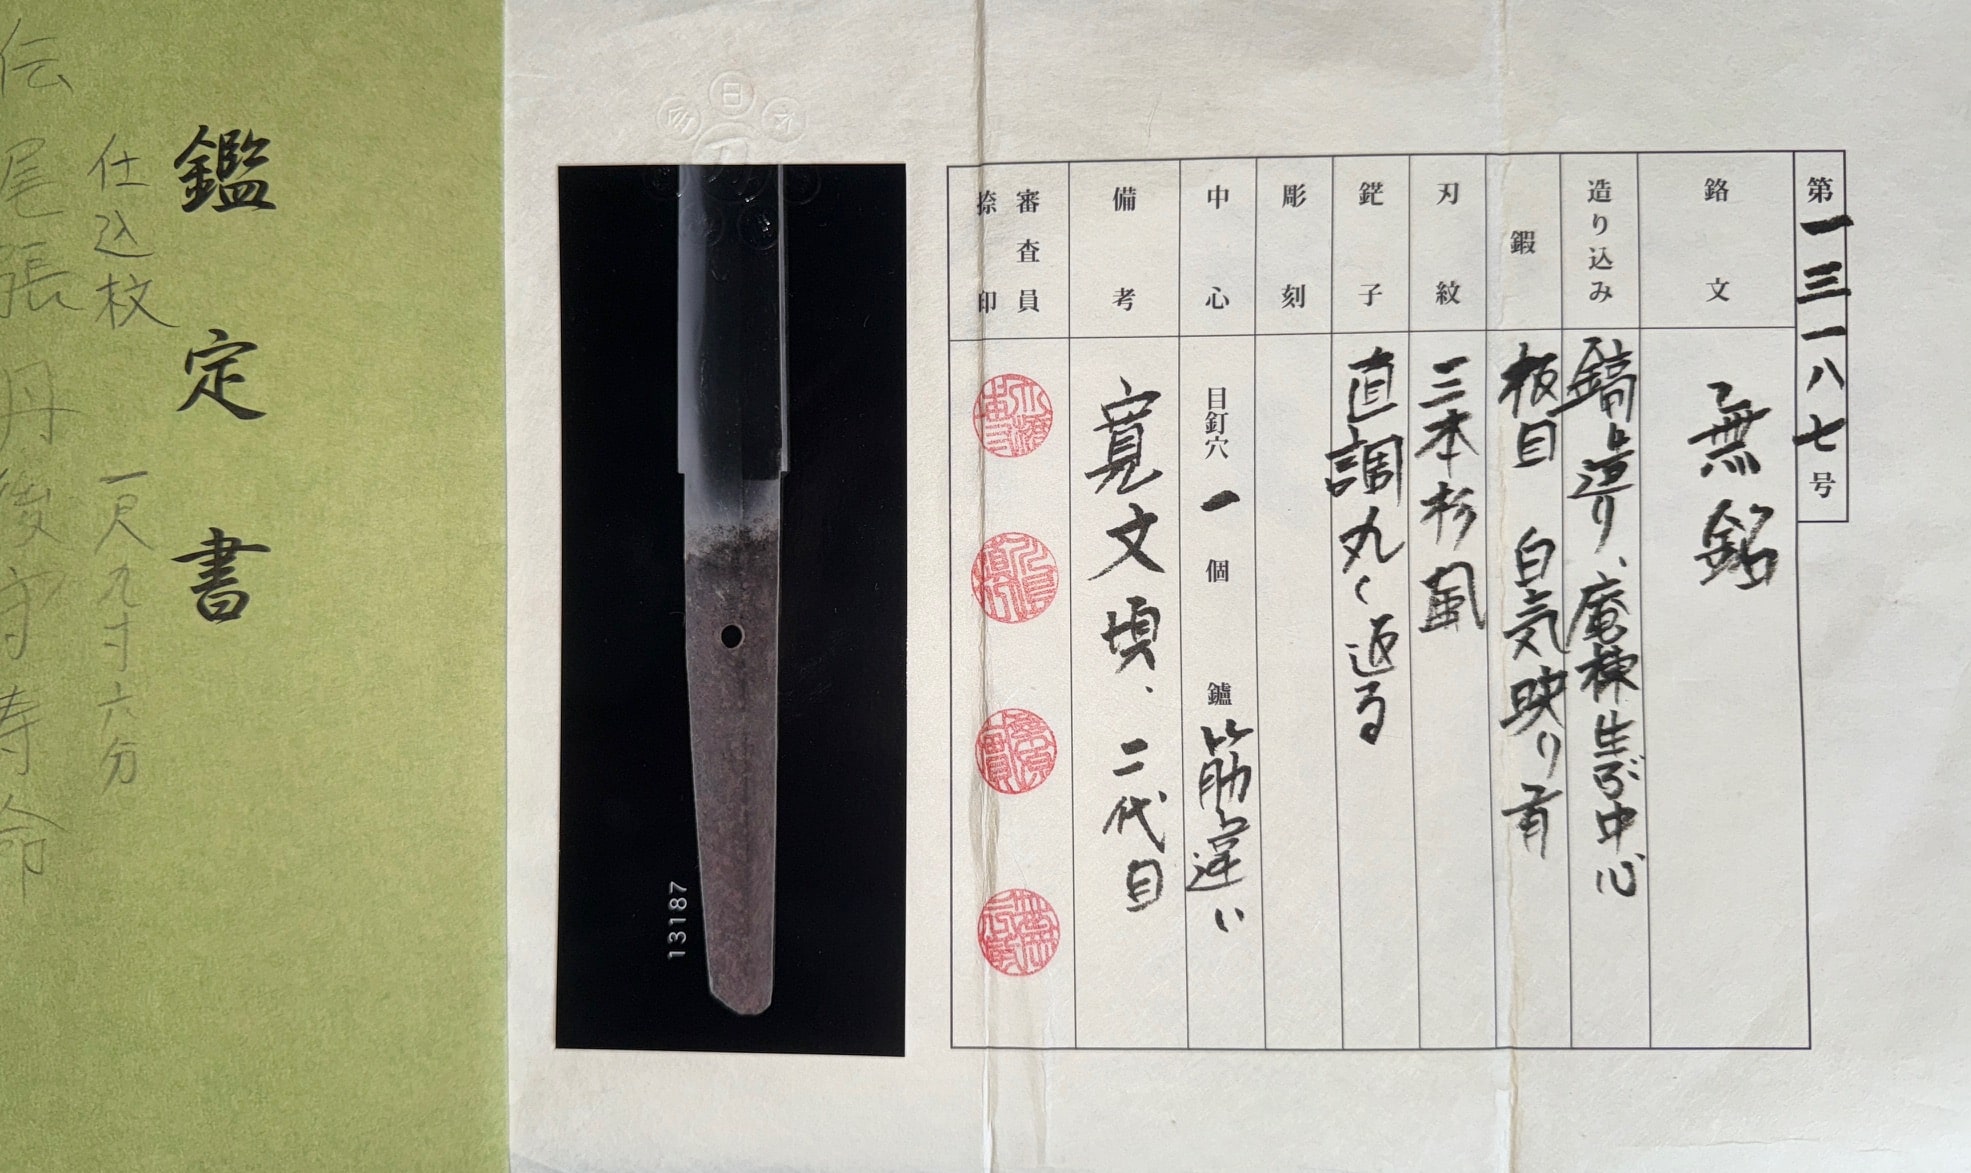 第一三一八七号
銘文
無銘
造り込み
鎬造り、庵棟生ぶ中心
鍜
板目 白気映り有
刃紋
三本杉風
鋩子
直調丸く返る
彫刻
中心
目釘穴 一 個 鑢 筋違い
備考
寛文頃、二代目
審査員
捺印
13187
日
本
会
刀
鑑定書
仕込杖 一尺九寸六分
伝 尾張丹後守寿命